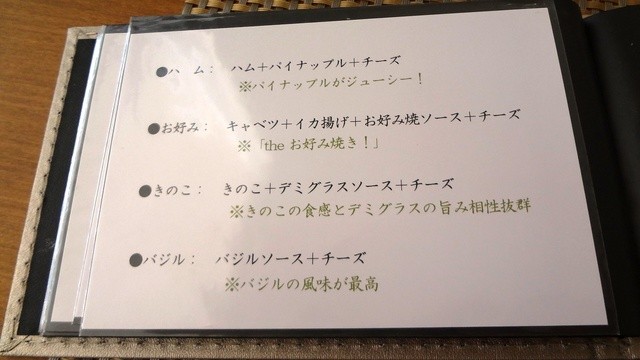 ●ハ　ム：　ハム＋パイナップル＋チーズ
※パイナップルがジューシー！
●お好み：　キャベツ＋イカ揚げ＋お好み焼ソース＋チーズ
※「the お好み焼き！」
●きのこ：　きのこ＋デミグラスソース＋チーズ
※きのこの食感とデミグラスの旨み相性抜群
●バジル：　バジルソース＋チーズ
※バジルの風味が最高